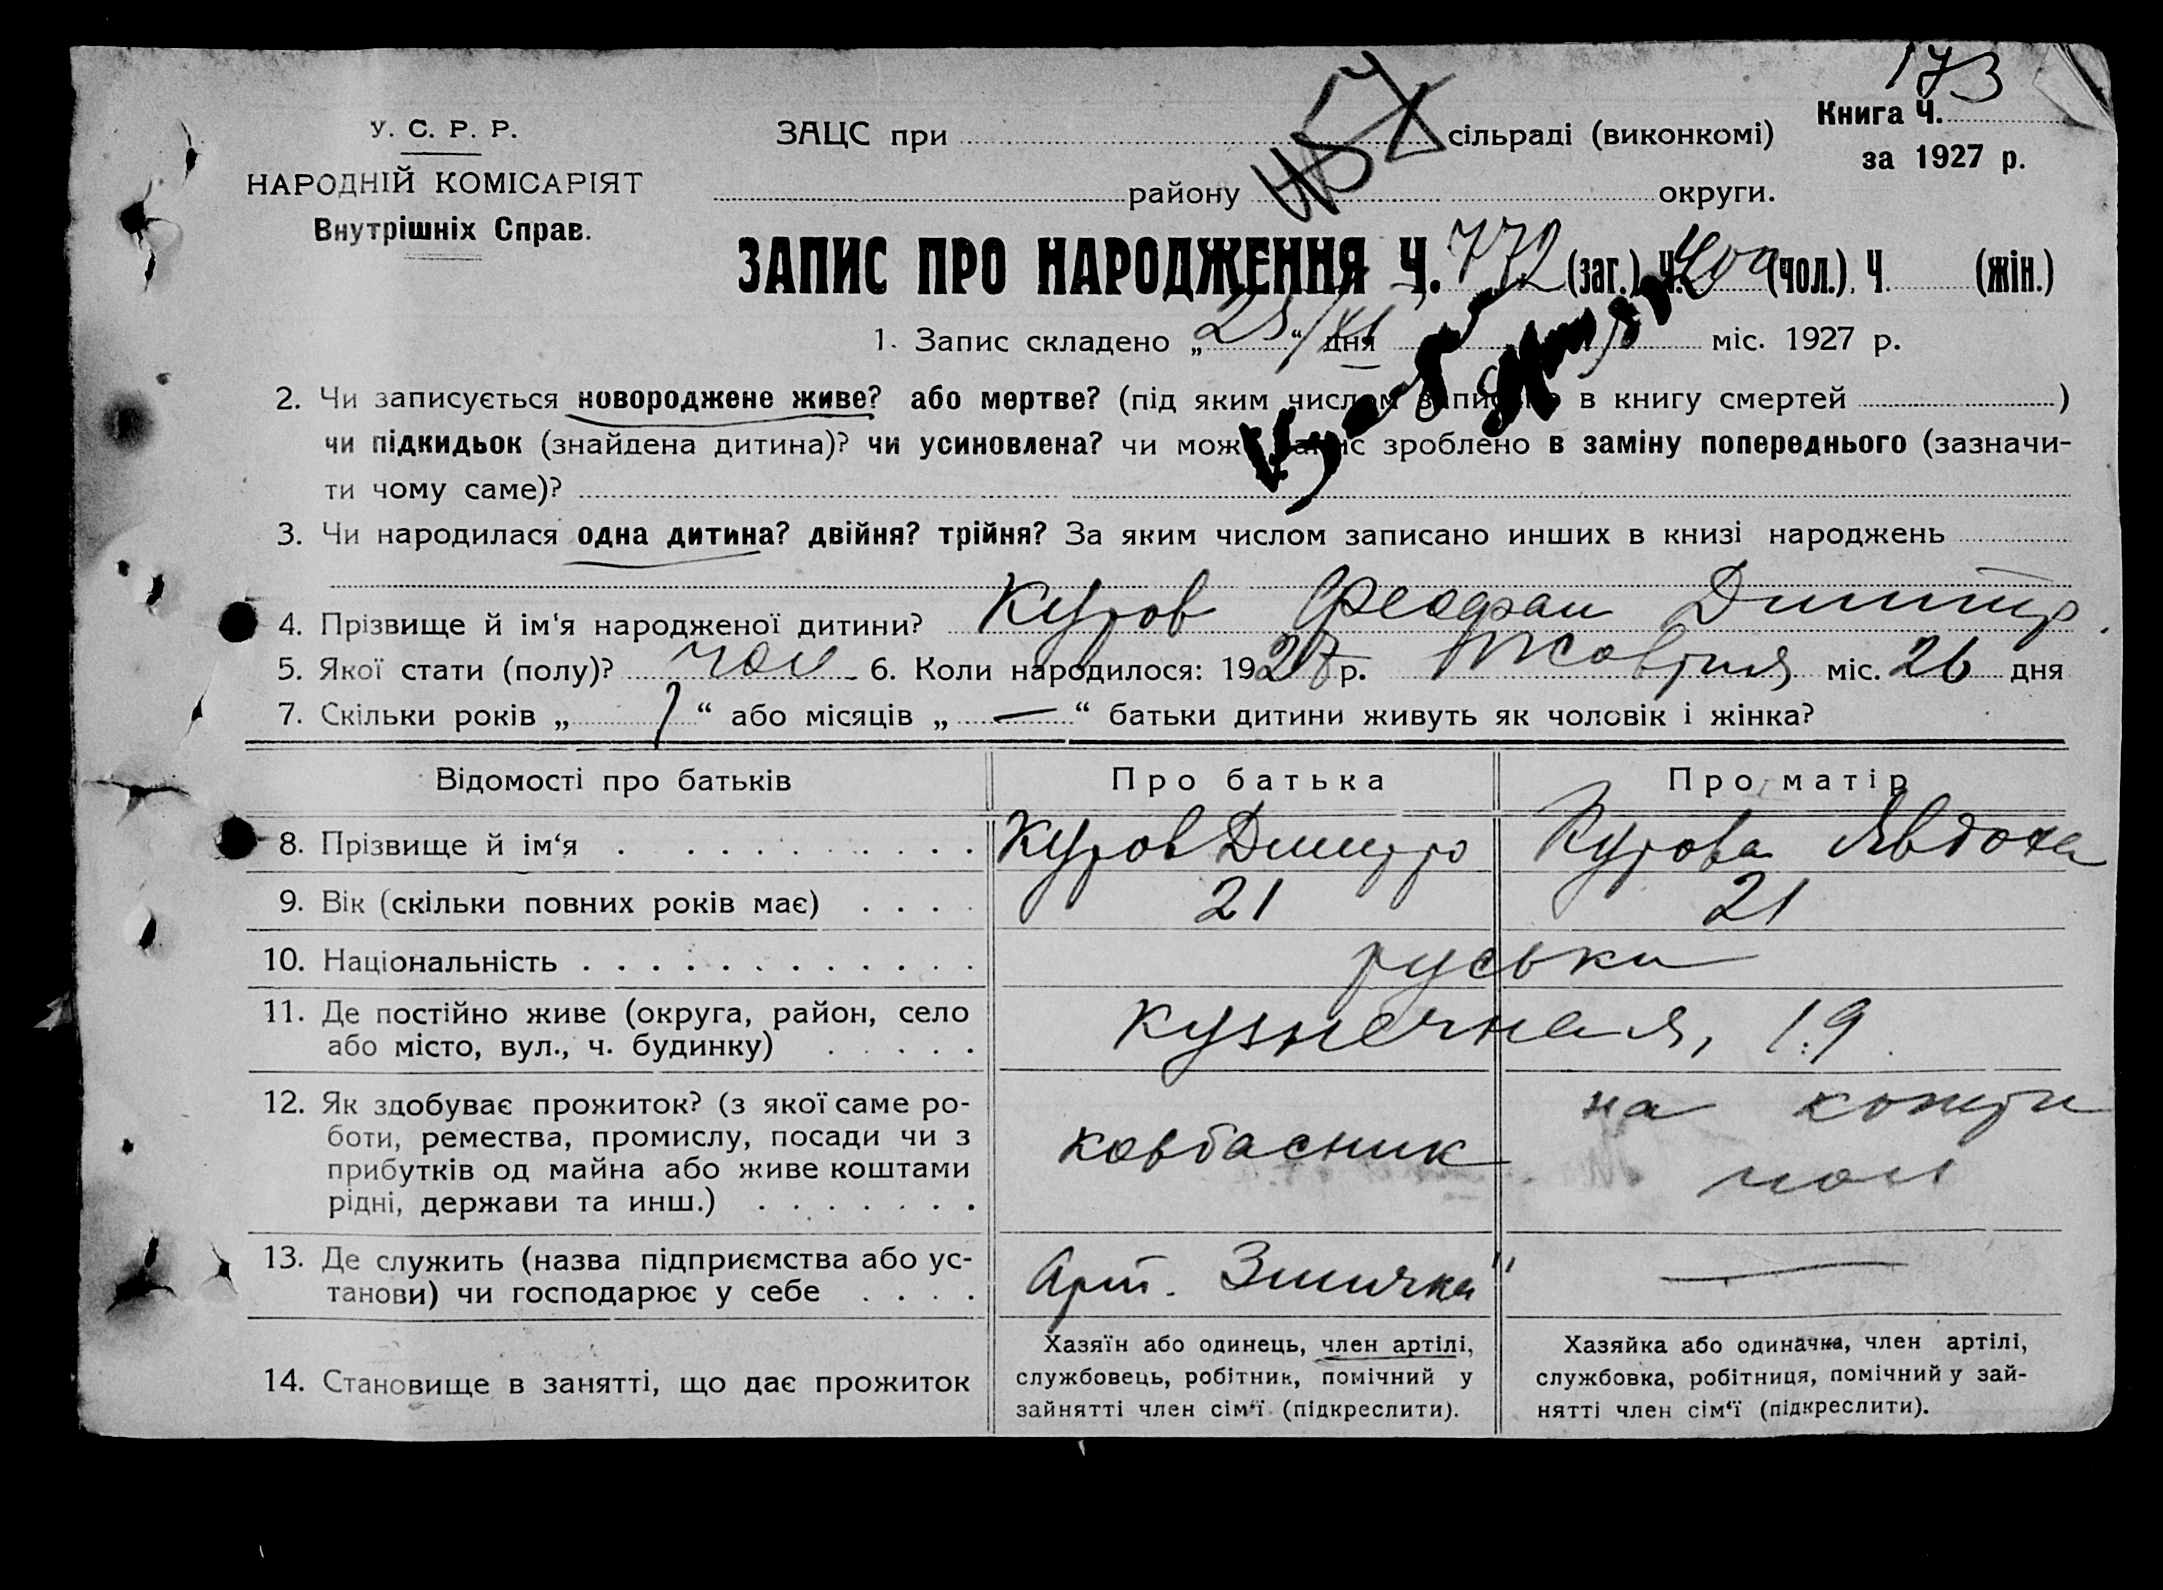 173
У. С. Р. Р.
НАРОДНІЙ КОМІСАРІЯТ
Внутрішніх Справ.
ЗАЦС при сільраді (виконкомі)
Книга Ч.
за 1927 р.
району округи.
ЗАПИС ПРО НАРОДЖЕННЯ Ч. 772 (заг.), Ч. 409 (чол.), Ч. (жін.)
1. Запис складено „ 25 “ /XI дня міс. 1927 р.
2. Чи записується новороджене живе? або мертве? (під яким числом записано в книгу смертей )
чи підкидьок (знайдена дитина)? чи усиновлена? чи може запис зроблено в заміну попереднього (зазначи-
ти чому саме)?
3. Чи народилася одна дитина? двійня? трійня? За яким числом записано инших в книзі народжень
4. Прізвище й ім‘я народженої дитини? Куров Феофан Дмитр.
5. Якої стати (полу)? чол 6. Коли народилося: 1927 р. Жовтня міс. 26 дня
7. Скільки років „ 1 “ або місяців „ — “ батьки дитини живуть як чоловік і жінка?
Відомості про батьків Про батька Про матір
8. Прізвище й ім‘я Куров Дмитро Курова Явдоха
9. Вік (скільки повних років має) 21 21
10. Національність руськи
11. Де постійно живе (округа, район, село
або місто, вул., ч. будинку) Кузнечная, 19
12. Як здобуває прожиток? (з якої саме ро-
боти, ремества, промислу, посади чи з
прибутків од майна або живе коштами
рідні, держави та инш.) ковбасник на кошти чол
13. Де служить (назва підприємства або ус-
танови) чи господарює у себе Арт. Змичка" —
14. Становище в занятті, що дає прожиток
Хазяїн або одинець, член артілі,
службовець, робітник, помічний у
зайнятті член сім‘ї (підкреслити).
Хазяйка або одиначка, член артілі,
службовка, робітниця, помічний у зай-
нятті член сім‘ї (підкреслити).